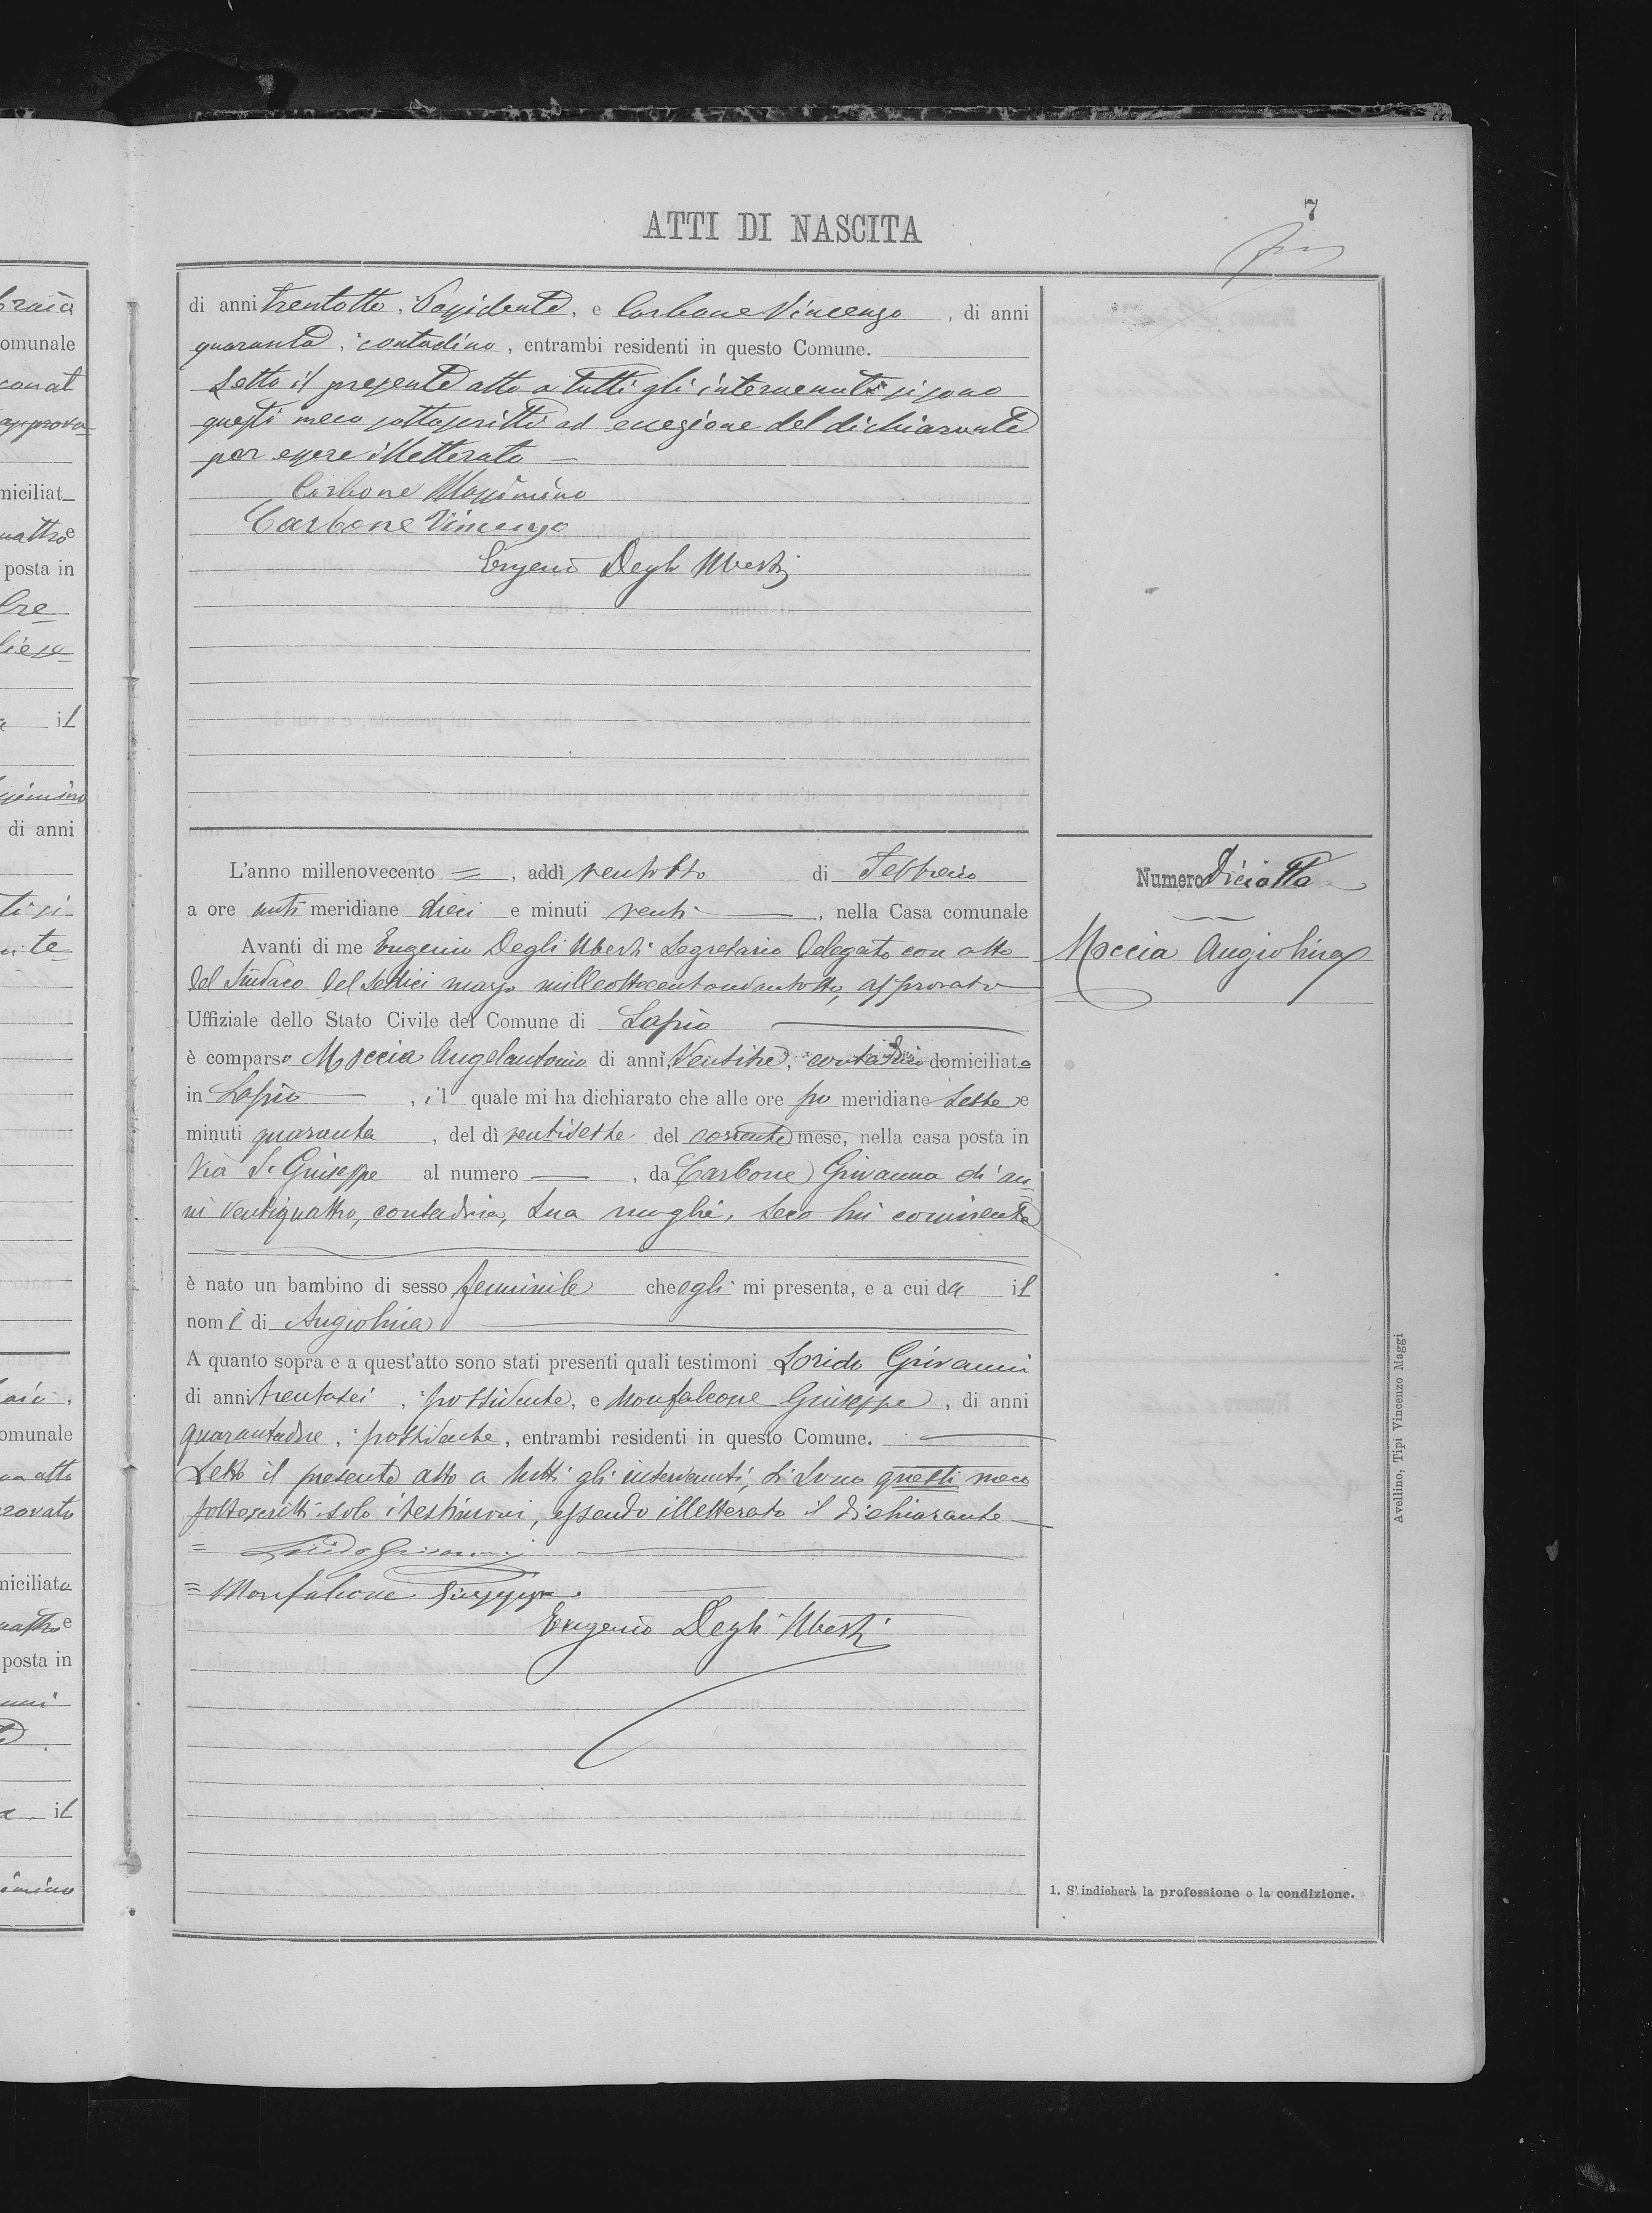 7
ATTI DI NASCITA
di anni trentotto, Possidente, e Carbone Vincenzo, di anni
quaranta, contadino, entrambi residenti in questo Comune.
Letto il presente atto a tutti gli intervenuti si sono
questi meco sottoscritti ad eccezione del dichiarante
per essere illetterato —
Carbone Massimino
Carbone Vincenzo
Eugenio Degli Uberti
L'anno millenovecento =, addì ventotto di Febbraio
a ore anti meridiane dieci e minuti venti —, nella Casa comunale
Avanti di me Eugenio Degli Uberti Segretario Delegato con atto
del Sindaco del sedici marzo milleottocentonovantotto, approvato
Uffiziale dello Stato Civile del Comune di Lapio —
è comparso Moccia Angelantonio di anni Ventitre, contadino domiciliato
in Lapio —, il quale mi ha dichiarato che alle ore po meridiane sette e
minuti quaranta, del dì ventisette del corrente mese, nella casa posta in
Via S. Giuseppe al numero —, da Carbone Giovanna di an-
ni ventiquattro, contadina, sua moglie, seco lui convivente
è nato un bambino di sesso femminile che egli mi presenta, e a cui da il
nome di Angiolina —
A quanto sopra e a quest'atto sono stati presenti quali testimoni Lorido Giovanni
di anni trentasei, possidente, e Monfalcone Giuseppe, di anni
quarantadue, possidente, entrambi residenti in questo Comune. —
Letto il presente atto a tutti gli intervenuti, si sono questi meco
sottoscritti solo i testimoni, essendo illetterato il dichiarante —
= Lorido Giovanni —
= Monfalcone Giuseppe
Eugenio Degli Uberti
Numero Diciotto
Moccia Angiolina
1. S'indicherà la professione o la condizione.
Avellino, Tipi Vincenzo Maggi